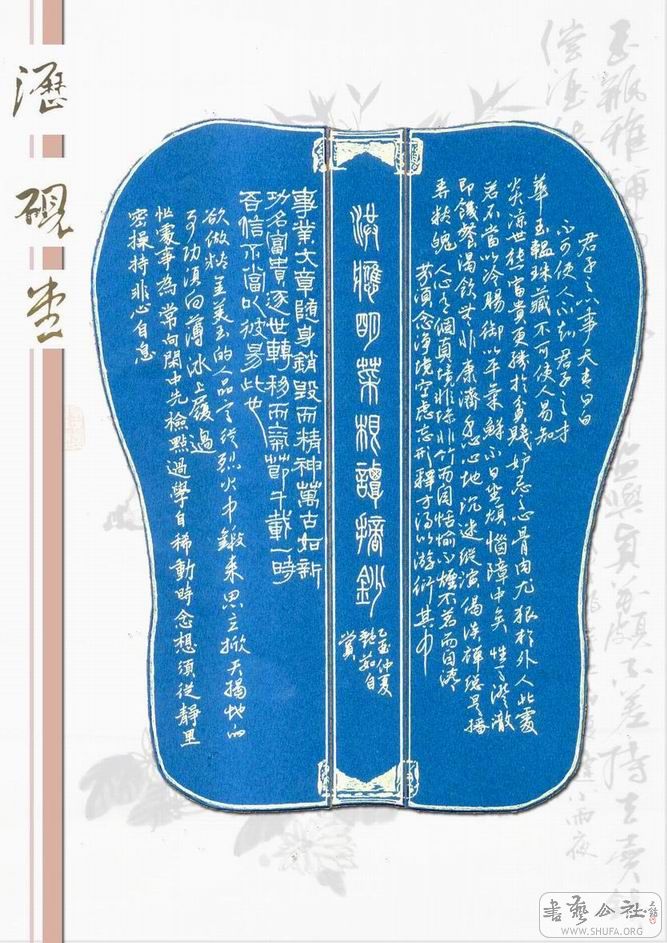 瀝硯堂
君子之心事天青日白
不可使人不知君子之才
華玉韞珠藏不可使人易知
炎涼世態富貴更勝於貧賤妒忌之心骨肉尤狠於外人此處
若不當以冷腸御以平氣鮮不日坐煩惱障中矣性天澄澈
即饑餐渴飲無非康濟身心地沉迷縱演偈談禪總是播
弄精魄人心有個真境非絲非竹而自恬愉不煙不茗而自清
芬須念淨境空慮忘形釋才得以游衍其中
洪應明菜根譚摘鈔
仲夏
自
賞
事業文章隨身銷毀而精神萬古如新
功名富貴逐世轉移而氣節千載一時
吾信不當以彼易此也
欲做精金美玉的人品定從烈火中鍛來思立掀天揭地的
事功須向薄冰上履過
忙處事為常向閑中先檢點過舉自稀動時念想須從靜里
密操持非心自息
書藝公社
WWW.SHUFA.ORG